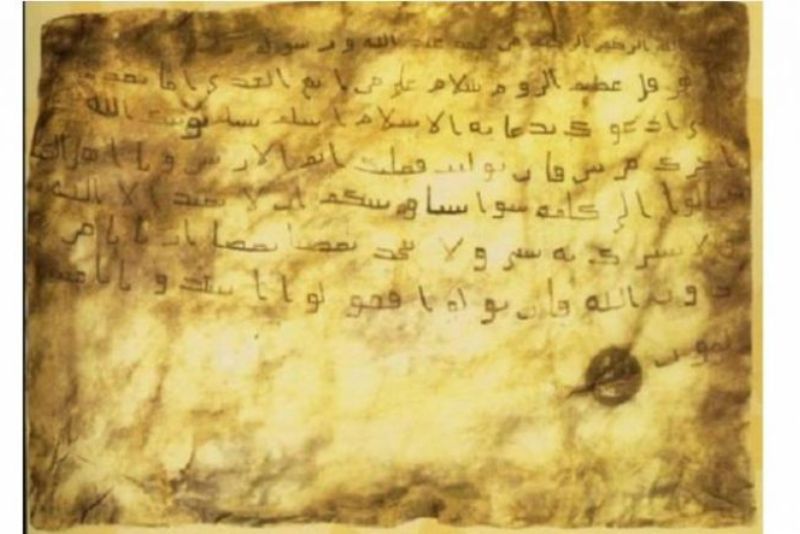 الله الرحمن الرحيم من محمد عبد الله ورسوله
هرقل عظيم الروم سلام على من اتبع الهدى اما بعد
فانى ادعوك بدعاية الاسلام اسلم تسلم يؤتك الله
اجرك مرتين فان توليت فعليك اثم الاريسين ويا اهل الك
تعالوا الى كلمة سوا بيننا وبينكم ان لا نعبد الا الله
ولا نشرك به شي ولا يتخذ بعضنا بعضا اربابا من
دون الله فان تولوا فقولوا اشهدوا بانا مسل
مون